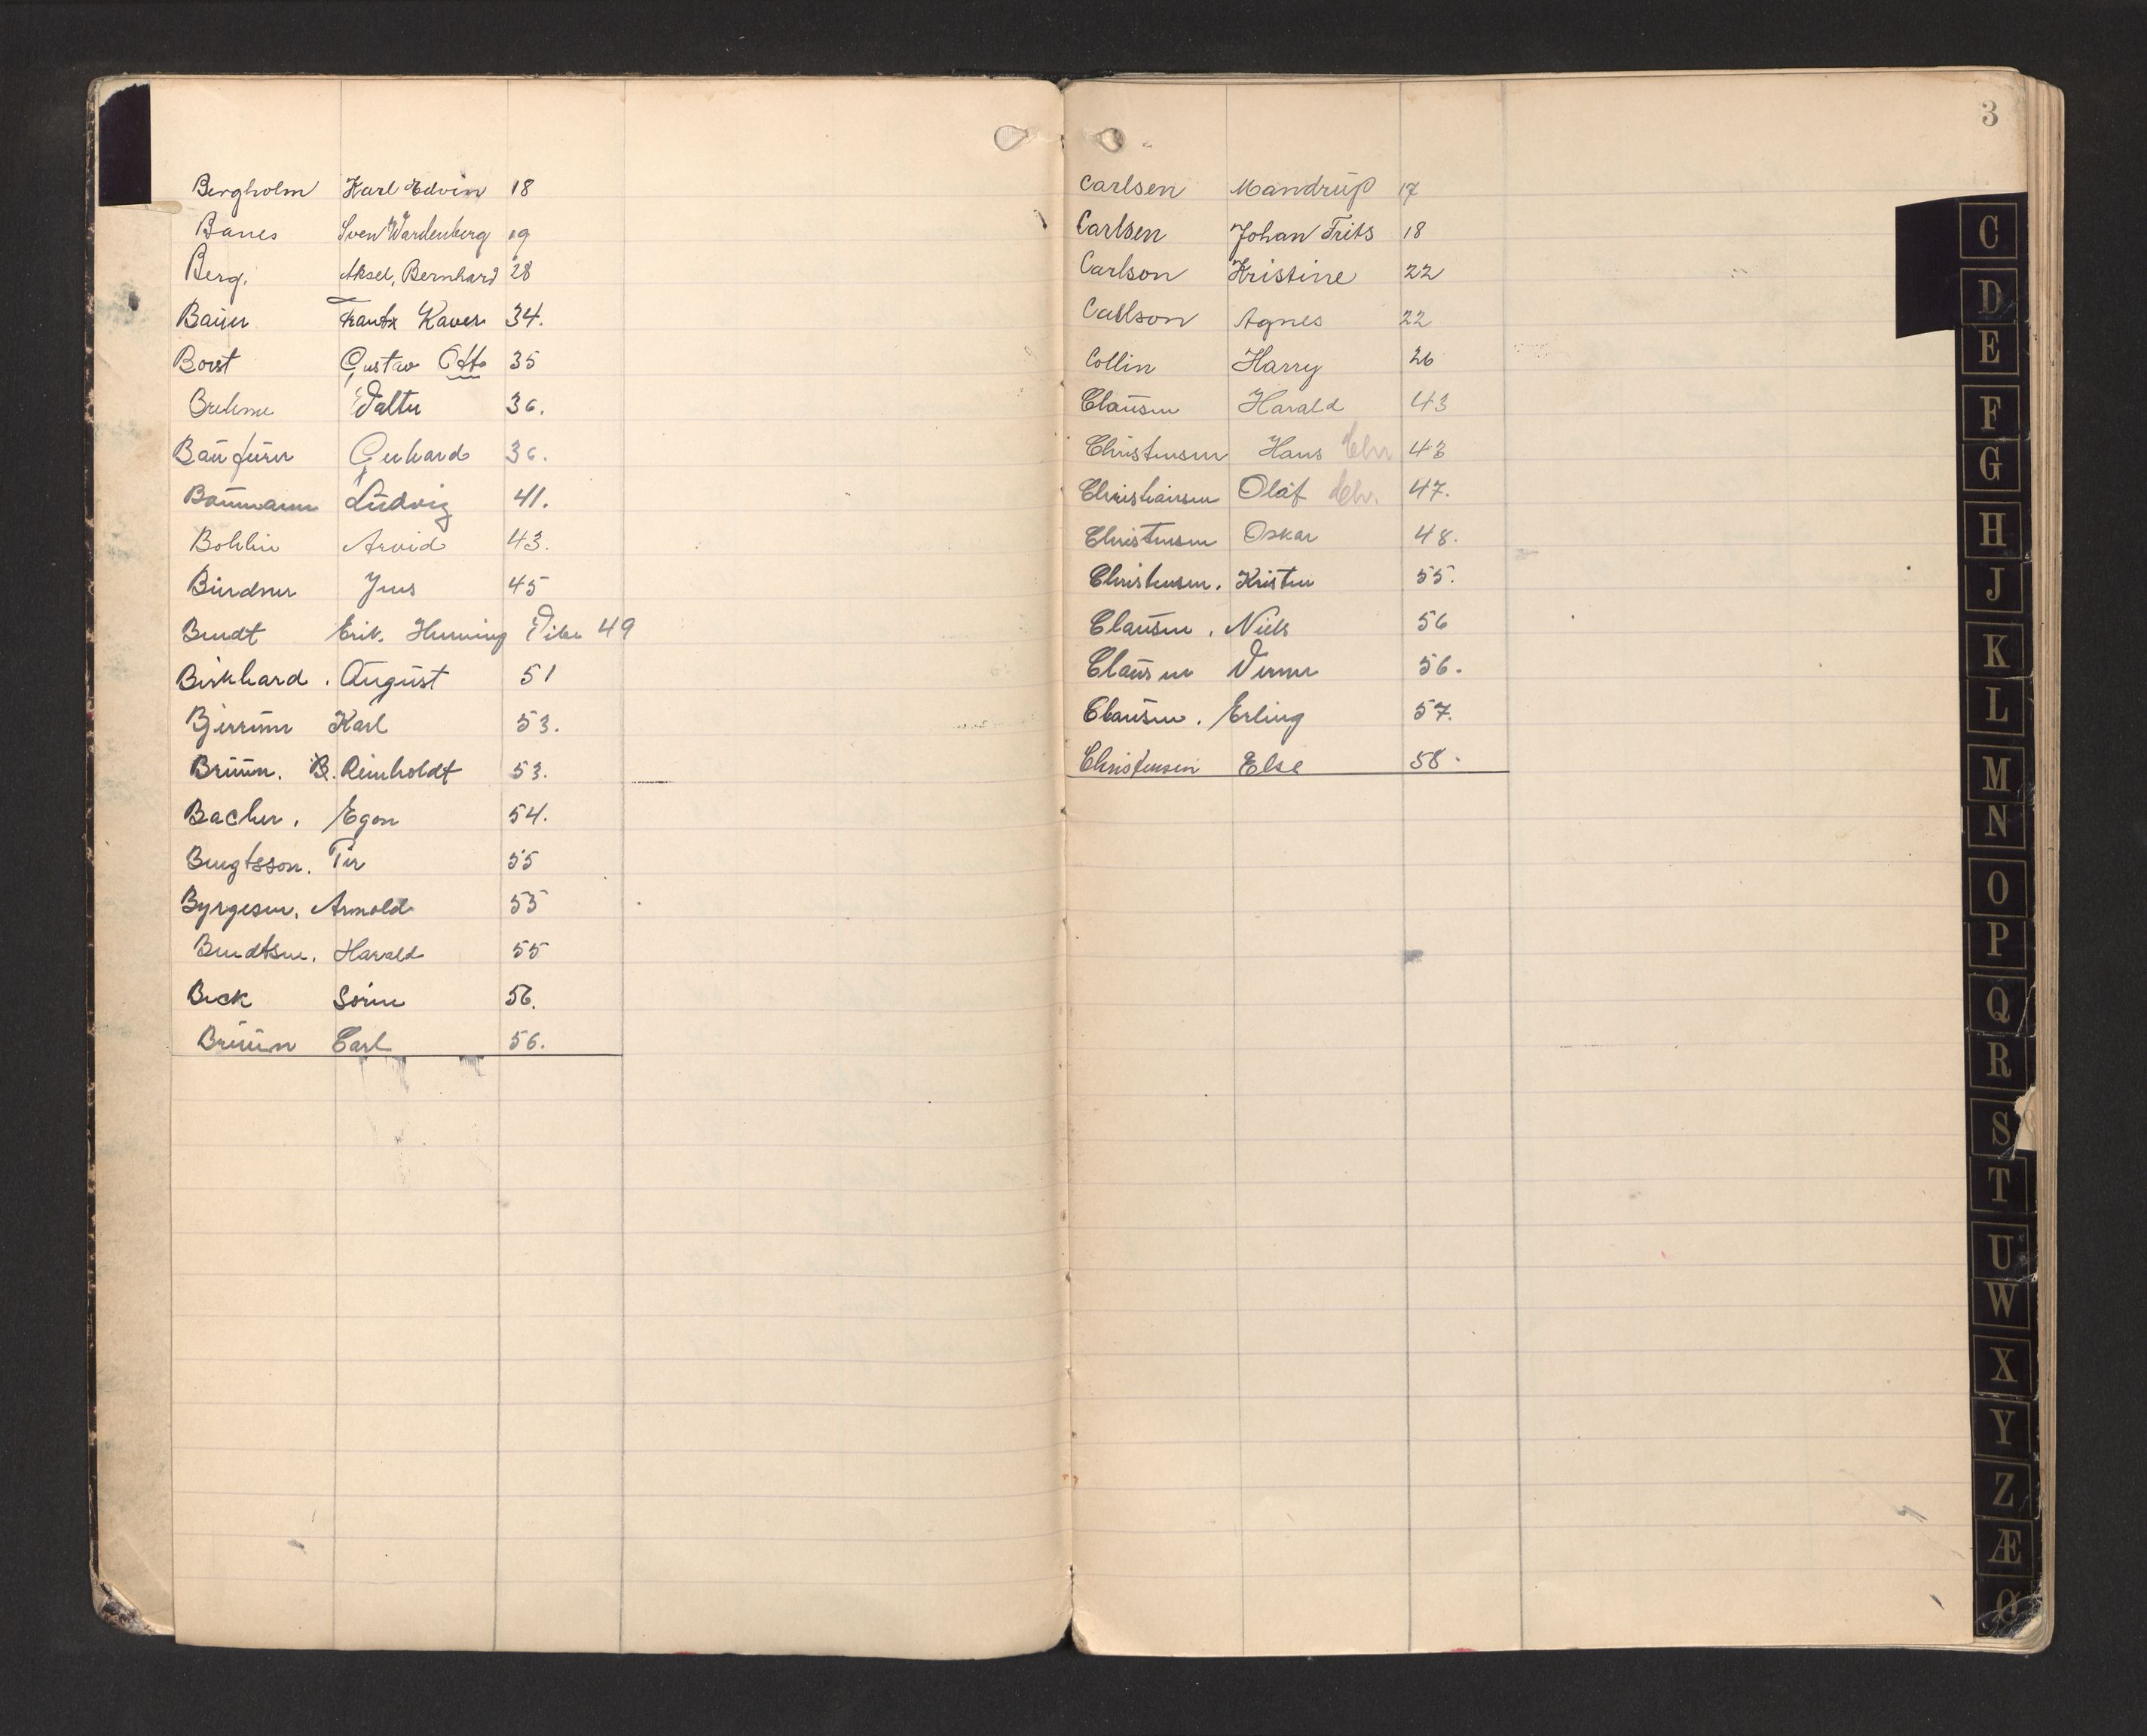 Bergholm Karl Edvin 18
Banes Sven Wardenberg 19
Berg. Aksel, Bernhard 28
Baijer Frantx Xaver 34.
Borst Gustav Otto 35
Brehme Valter 36.
Gerhard 36.
Baumann Ludvig 41.
Bohlin Arvid 43.
Jens 45
Bendt Erik. Henning 49
Birkhard. August 51
Bjerrum Karl 53.
Bruun. B. Reinholdt 53.
Bacher. Egon 54.
Bengtsson. Per 55
Byrgesen. Arnold 55
Bendtsen. Harald 55
Beck Søren 56.
Bruun Carl 56.
3
Carlsen Mandrup 17
Carlsen Johan Frits 18
Carlson Kristine 22
Carlson Agnes 22
Collin Harry 26
Clausen Harald 43
Christensen Hans Chr 43
Christiansen Olaf Chr. 47.
Christensen Oskar 48.
Christensen. Kristen 55.
Clausen. Niels 56
Clausen Verner 56.
Clausen. Erling 57.
Christensen Else 58.
C
D
E
F
G
H
J
K
L
M
N
O
P
Q
R
S
T
U
W
X
Y
Z
Æ
Ø